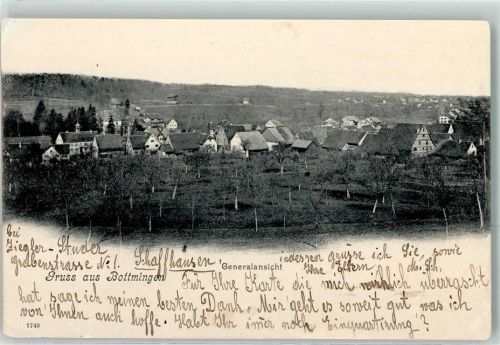 bei
Ziegler-Studer
Grabenstrasse No 1. Schaffhausen, indessen grüsse ich Sie, sowie
Generalansicht Ihre Eltern
Gruss aus Bottmingen
Für Ihre Karte die mich wirklich überrascht
hat sage ich meinen besten Dank, Mir geht es soweit gut was ich
von Ihnen auch hoffe. Habt Ihr im̄er noch Einquartirung?
1740